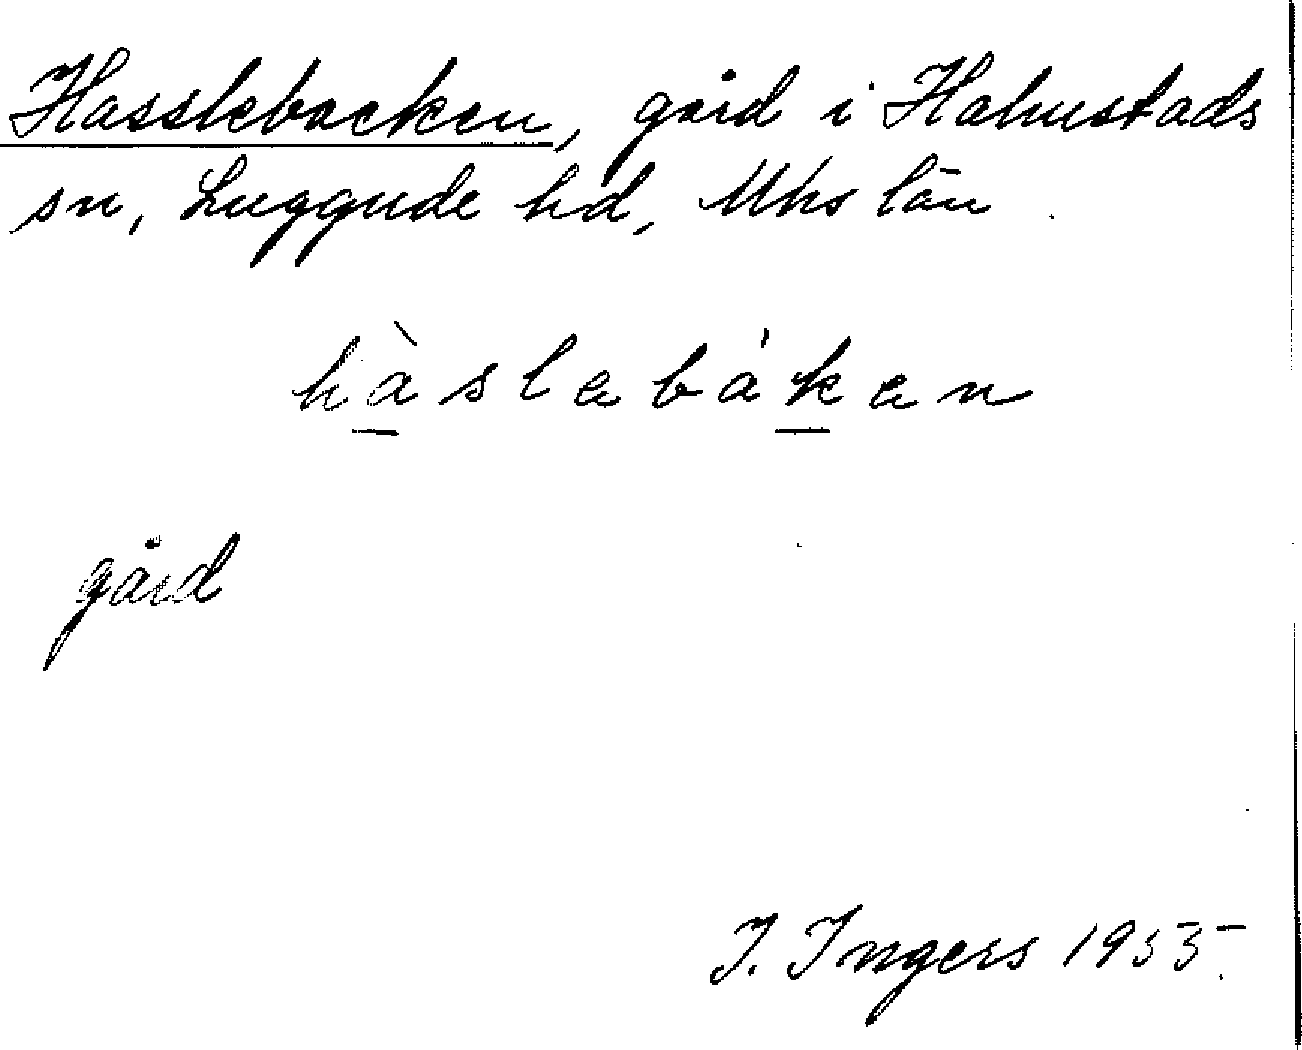 Hasslebacken, gård i Halmstads
sn, Luggude hd, Mhs län.
hàslebáken
gård
I. Ingers 1955.